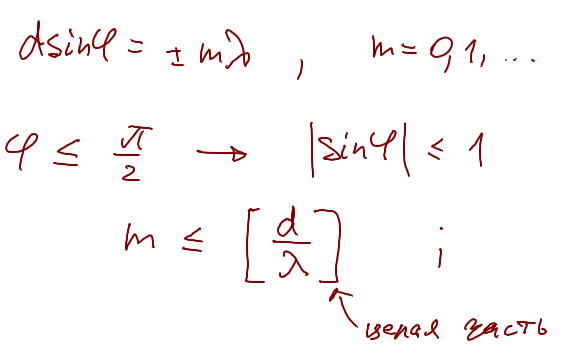 d sinφ = ± mλ , m = 0,1,...
φ ≤ π/2 → |sinφ| ≤ 1
m ≤ [d/λ] ;
целая часть